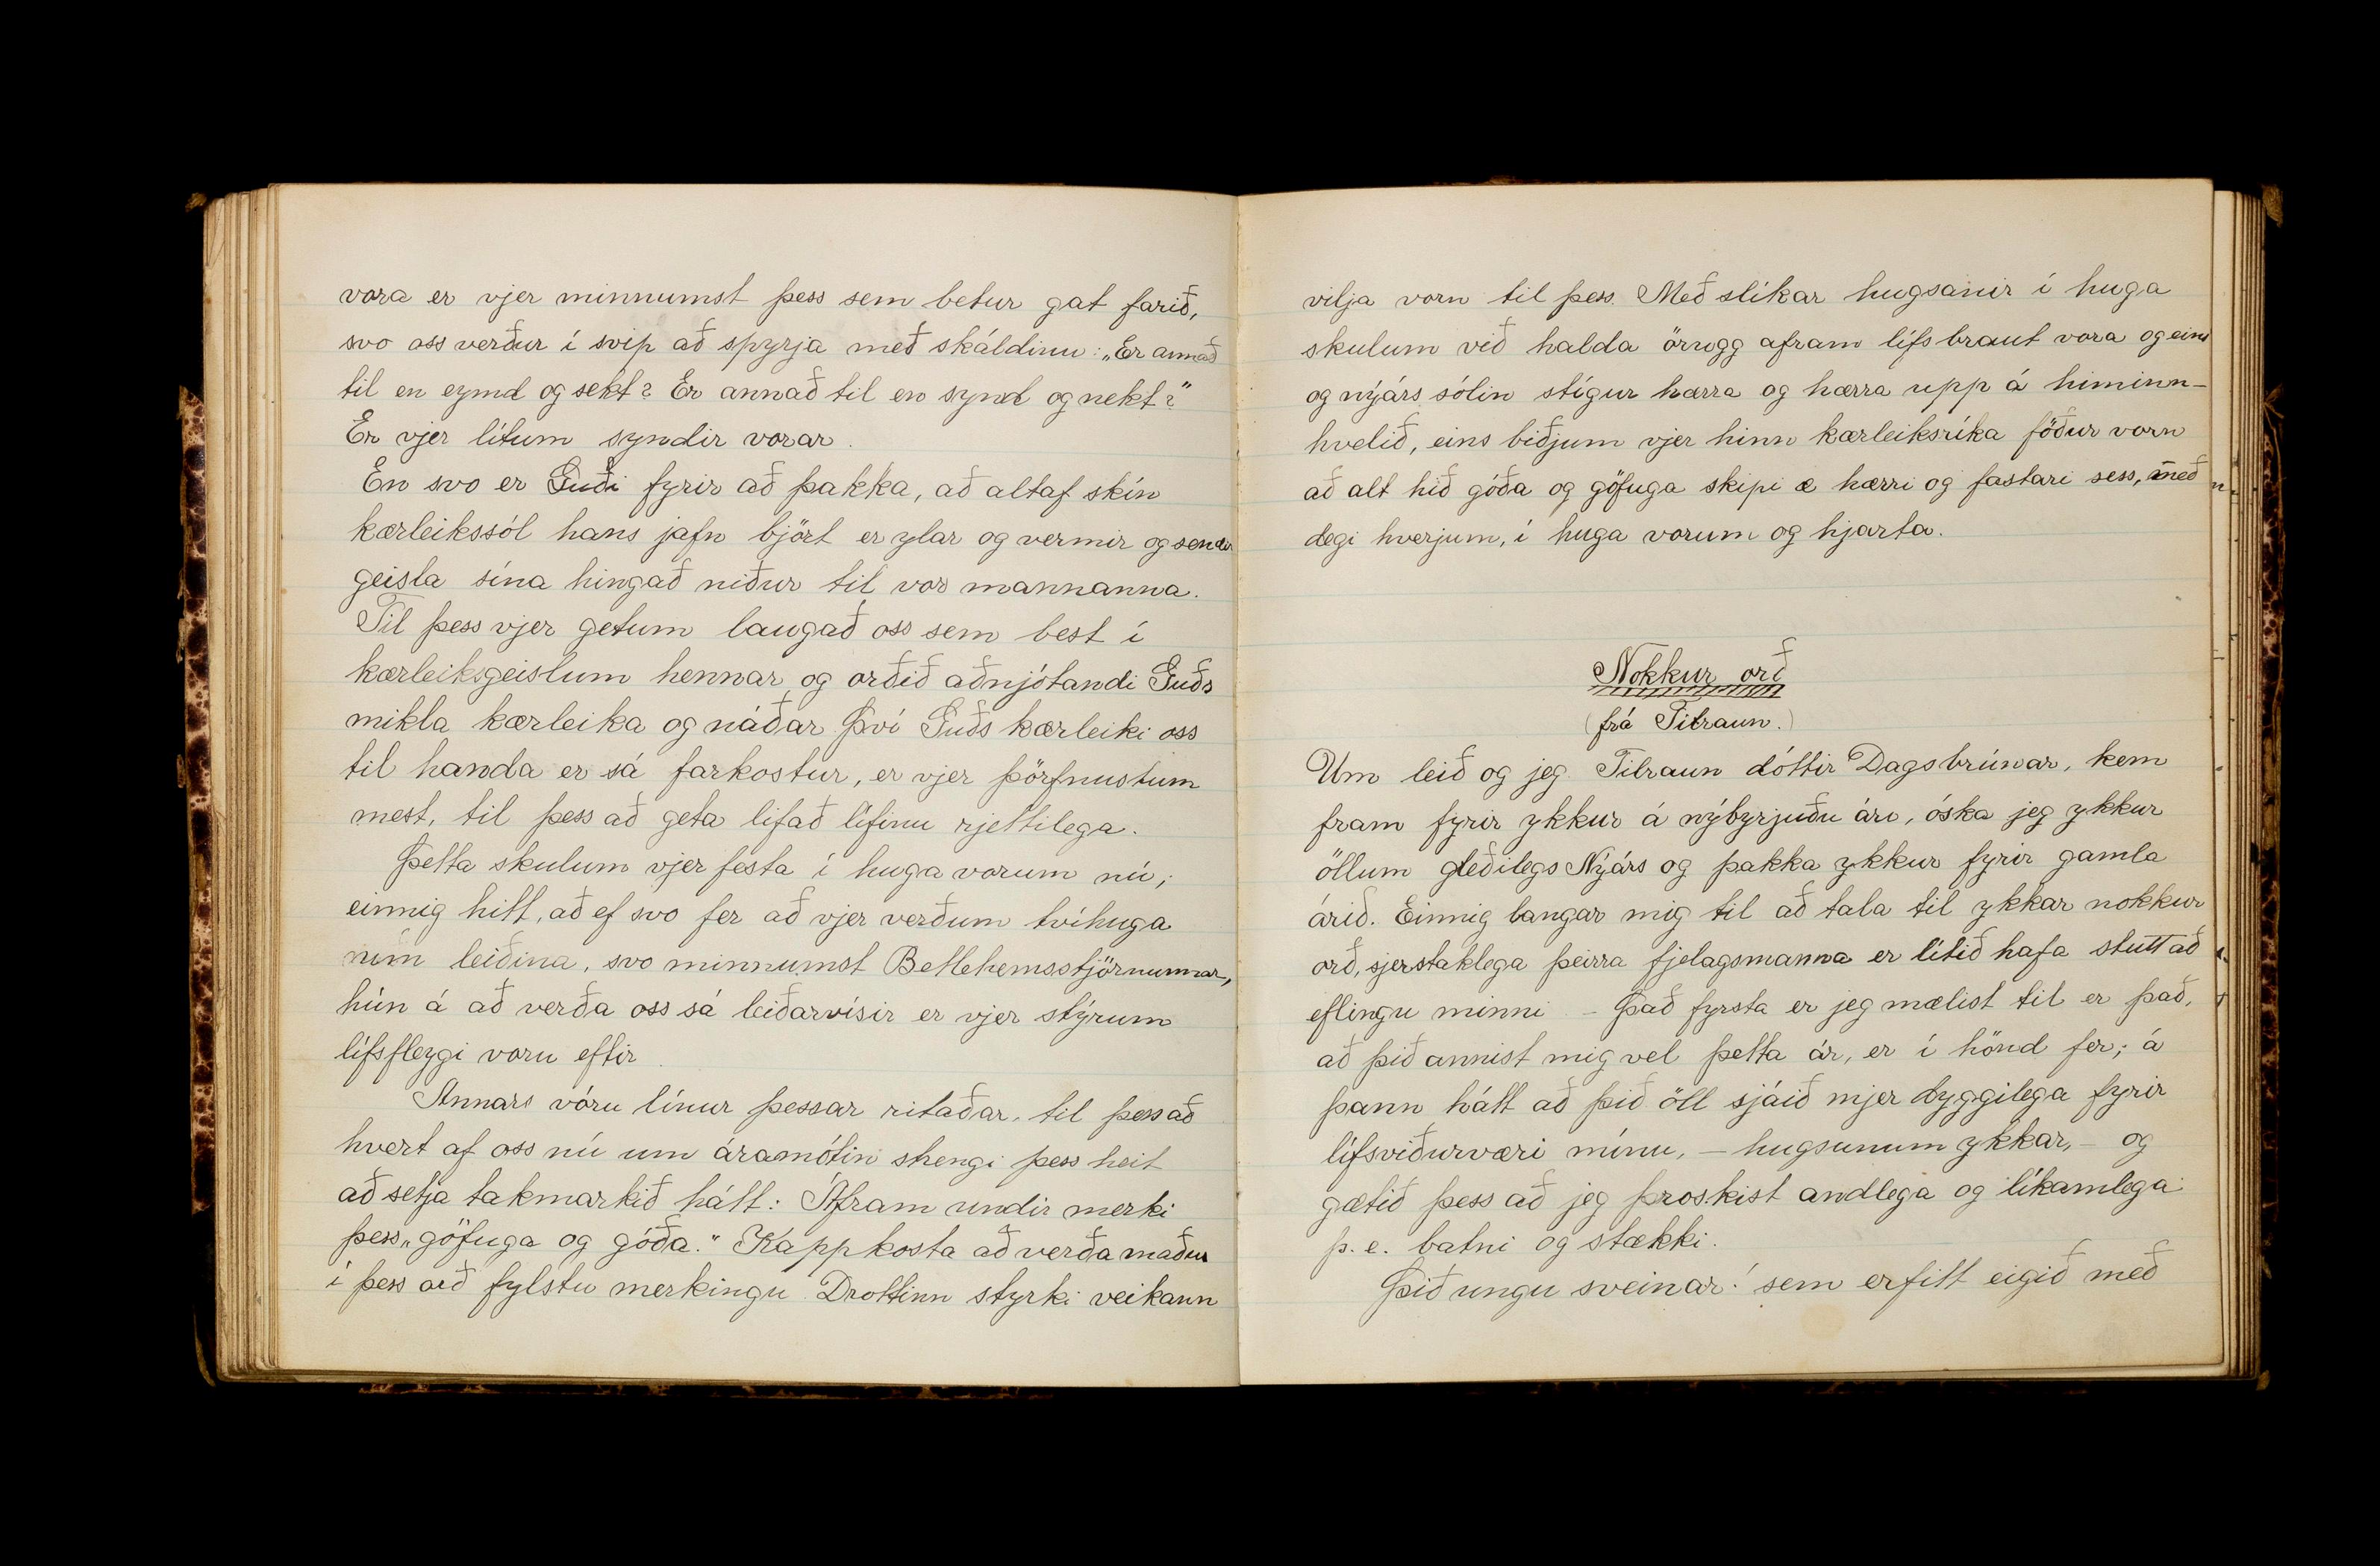 vora er vjer minnumst þess sem betur gat farið,
svo oss verður í svip að spyrja með skáldinu: „Er annað
til en eymd og sekt? Er annað til en synd og nekt?"
Er vjer lítum syndir vorar.
En svo er Guði fyrir að þakka, að altaf skín
kærleikssól hans jafn björt er ylar og vermir og sendir
geisla sína hingað niður til vor mannanna.
Til þess vjer getum laugað oss sem best í
kærleiksgeislum hennar, og orðið aðnjótandi Guðs
mikla kærleika og náðar Því Guðs kærleiki oss
til handa er sá farkostur, er vjer þörfnustum
mest, til þess að geta lifað lífinu rjettilega.
Þetta skulum vjer festa í huga vorum nú;
einnig hitt, að ef svo fer að vjer verðum tvíhuga
um leiðina, svo minnumst Betlehemsstjörnunnar,
hún á að verða oss sá leiðarvísir er vjer stýrum
lífsfleygi voru eftir.
Annars vóru línur þessar ritaðar, til þess að
hvert af oss nú um áramótin stengi þess heit
að setja takmarkið hátt: Áfram undir merki
þess „göfuga og góða." Kappkosta að verða maður
í þess orð fylstu merkingu. Drottinn styrki veikann
vilja vorn til þess. Með slíkar hugsanir í huga
skulum við halda örugg afram lífsbraut vora og eins
og nýárs sólin stígur hærra og hærra upp á himinn-
hvelið, eins biðjum vjer hinn kærleiksríka föður vorn
að alt hið góða og göfuga skipi æ hærri og fastari sess, með
degi hverjum, í huga vorum og hjarta.
Nokkur orð
(frá Tilraun.)
Um leið og jeg Tilraun dóttir Dagsbrúnar, kem
fram fyrir ykkur á nýbyrjuðu ári, óska jeg ykkur
öllum gleðilegs Nýárs og þakka ykkur fyrir gamla
árið. Einnig langar mig til að tala til ykkar nokkur
orð, sjerstaklega þeirra fjelagsmanna er lítið hafa stutt að
eflingu minni – Það fyrsta er jeg mælist til er það,
að þið annist mig vel þetta ár, er í hönd fer; á
þann hátt að þið öll sjáið mjer dyggilega fyrir
lífsviðurværi mínu, – hugsunum ykkar, – og
gætið þess að jeg þroskist andlega og líkamlega
þ.e. batni og stækki.
Þið ungu sveinar! sem erfitt eigið með